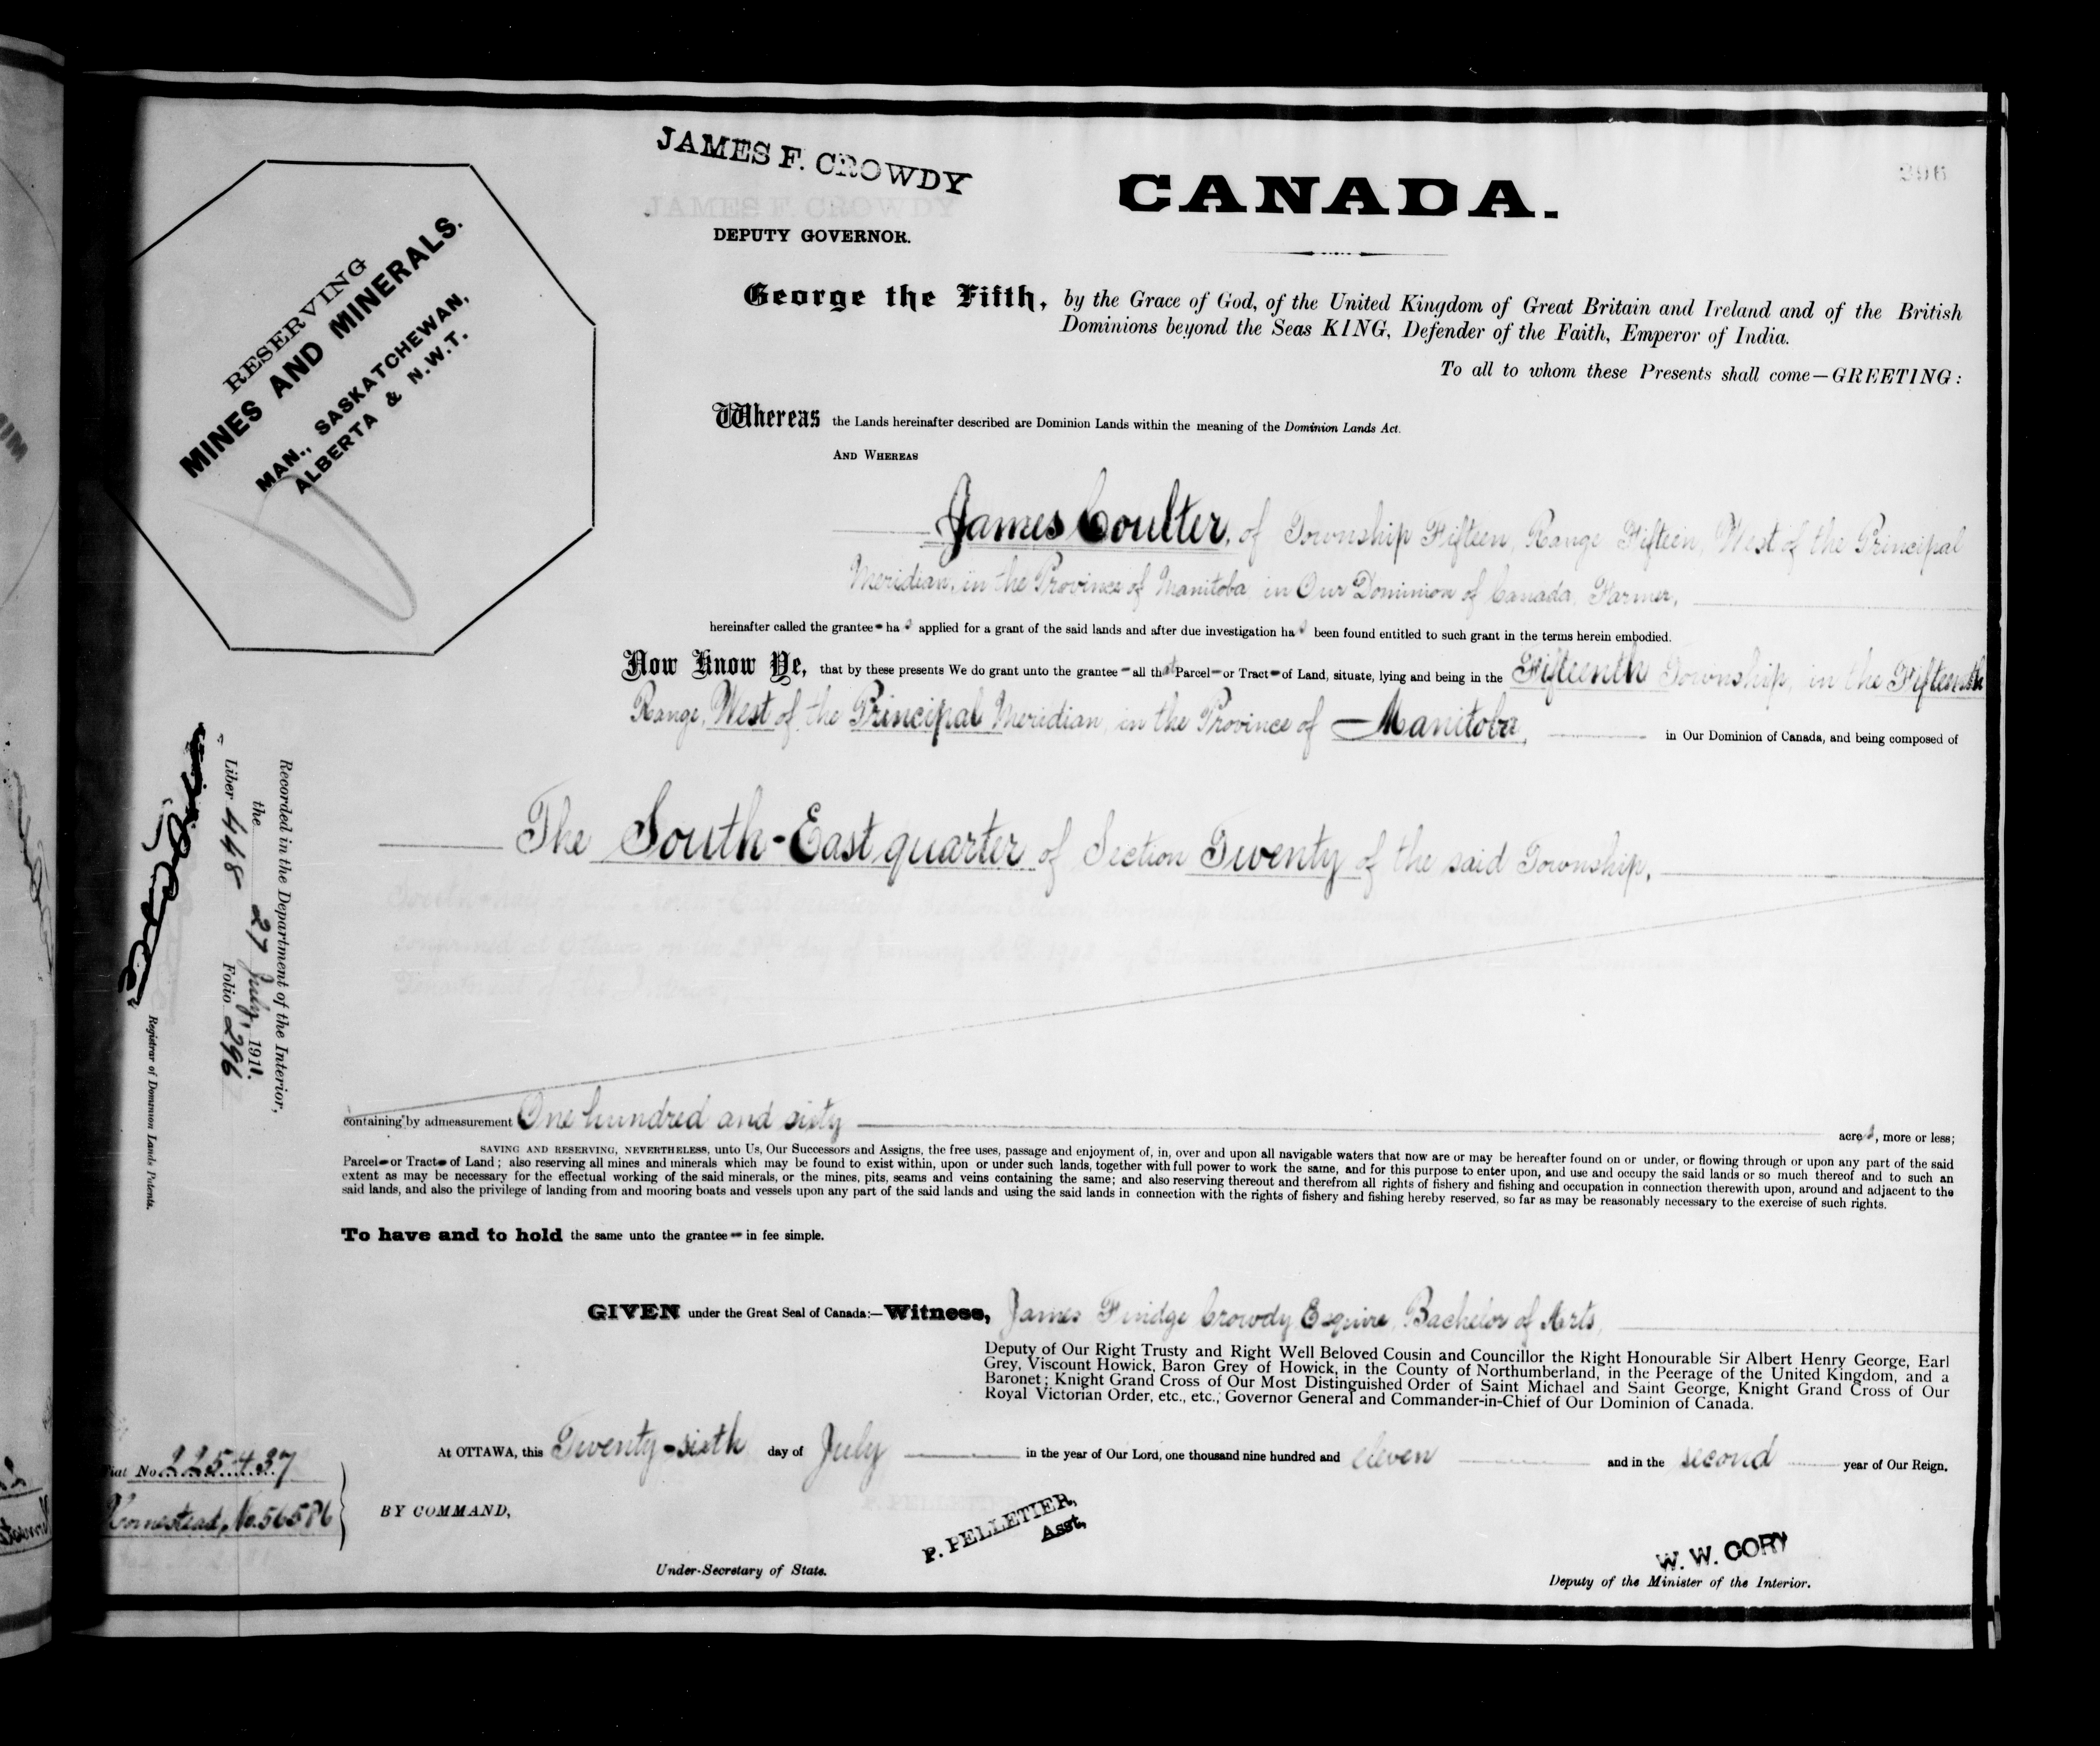 JAMES F. CROWDY
JAMES F. CROWDY
DEPUTY GOVERNOR.
CANADA.
296
RESERVING
MINES AND MINERALS.
MAN., SASKATCHEWAN,
ALBERTA & N.W.T.
George the Fifth, by the Grace of God, of the United Kingdom of Great Britain and Ireland and of the British
Dominions beyond the Seas KING, Defender of the Faith, Emperor of India.
To all to whom these Presents shall come—GREETING:
Whereas the Lands hereinafter described are Dominion Lands within the meaning of the Dominion Lands Act.
AND WHEREAS
James Coulter, of Township Fifteen, Range Fifteen, West of the Principal
Meridian, in the Province of Manitoba in Our Dominion of Canada, Farmer,
hereinafter called the grantee has applied for a grant of the said lands and after due investigation has been found entitled to such grant in the terms herein embodied.
Now Know Ye, that by these presents We do grant unto the grantee all that Parcel or Tract of Land, situate, lying and being in the Fifteenth Township, in the Fifteenth
Range, West of the Principal Meridian, in the Province of Manitoba, in Our Dominion of Canada, and being composed of
The South-East quarter of Section Twenty of the said Township,
containing by admeasurement One hundred and sixty acres, more or less;
SAVING AND RESERVING, NEVERTHELESS, unto Us, Our Successors and Assigns, the free uses, passage and enjoyment of, in, over and upon all navigable waters that now are or may be hereafter found on or under, or flowing through or upon any part of the said
Parcel or Tract of Land; also reserving all mines and minerals which may be found to exist within, upon or under such lands, together with full power to work the same, and for this purpose to enter upon, and use and occupy the said lands or so much thereof and to such an
extent as may be necessary for the effectual working of the said minerals, or the mines, pits, seams and veins containing the same; and also reserving thereout and therefrom all rights of fishery and fishing and occupation in connection therewith upon, around and adjacent to the
said lands, and also the privilege of landing from and mooring boats and vessels upon any part of the said lands and using the said lands in connection with the rights of fishery and fishing hereby reserved, so far as may be reasonably necessary to the exercise of such rights.
To have and to hold the same unto the grantee in fee simple.
GIVEN under the Great Seal of Canada:—Witness, James Findge Crowdy Esquire, Bachelor of Arts,
Deputy of Our Right Trusty and Right Well Beloved Cousin and Councillor the Right Honourable Sir Albert Henry George, Earl
Grey, Viscount Howick, Baron Grey of Howick, in the County of Northumberland, in the Peerage of the United Kingdom, and a
Baronet; Knight Grand Cross of Our Most Distinguished Order of Saint Michael and Saint George, Knight Grand Cross of Our
Royal Victorian Order, etc., etc., Governor General and Commander-in-Chief of Our Dominion of Canada.
At OTTAWA, this Twenty-sixth day of July in the year of Our Lord, one thousand nine hundred and eleven and in the second year of Our Reign.
BY COMMAND,
P. PELLETIER,
Asst.
Under-Secretary of State.
W. W. CORY
Deputy of the Minister of the Interior.
Recorded in the Department of the Interior,
the 27 July, 1911.
Liber 448 Folio 296
Registrar of Dominion Lands Patents.
Fiat No. 225437
Homestead, No. 56586